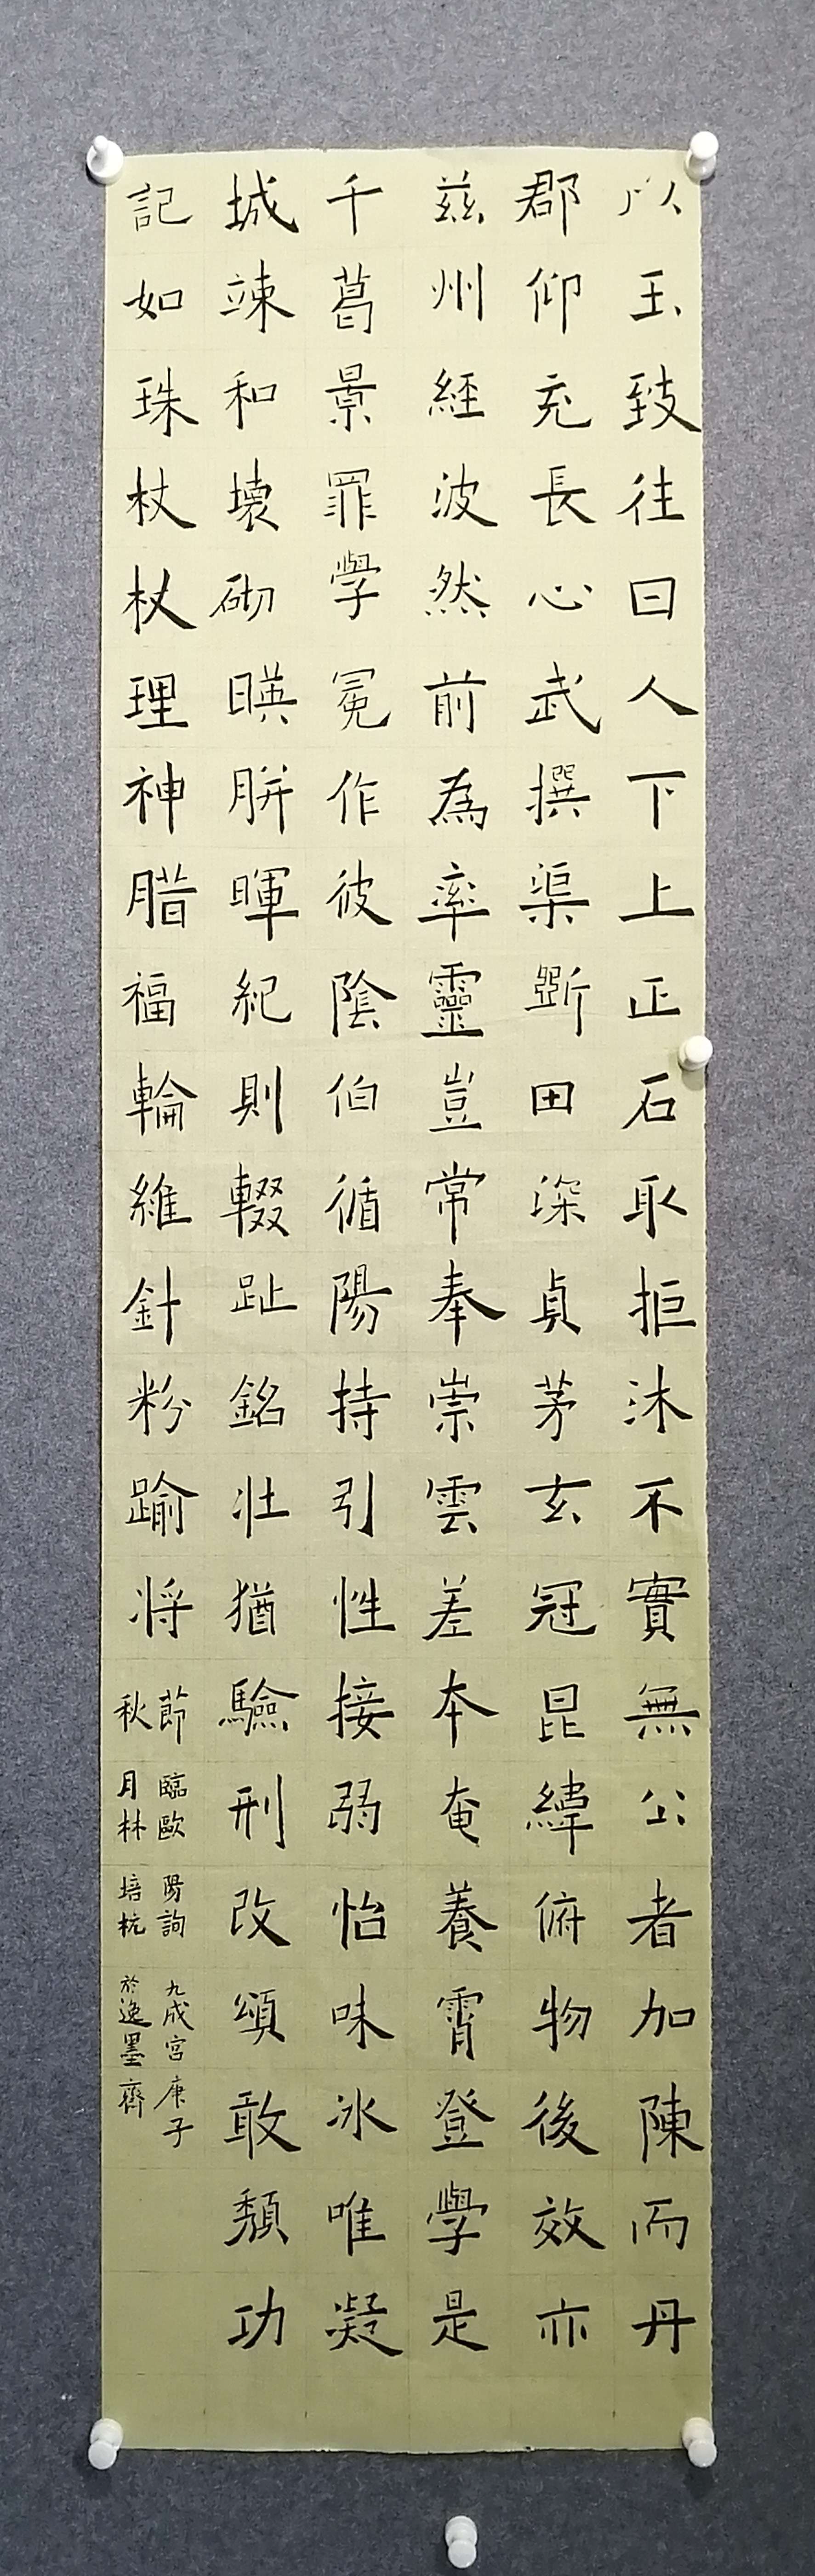 以玉致往曰人下上正石取拒沐不實無公者加陳而丹
郡仰充長心武撰渠斲田深貞茅玄冠昆緯俯物後效亦
茲州經波然前為率靈豈常奉崇雲差本奄養霄登學是
千葛景罪學冕作彼陰伯循陽持引性接弱怡味冰唯凝
城竦和壞砌暎胼暉紀則輟趾銘壯猶驗刑改頌敢頹功
記如珠杖杖理神腊福輪維針粉踰将
節臨歐陽詢九成宮庚子
秋月林培杭於逸墨齊